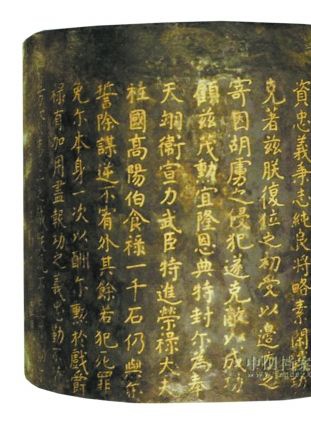 資忠義秉志純良將略素閑功
克著茲朕復位之初受以邊之
寄因胡虜之侵犯遂克敵以成功
顧茲茂勳宜隆恩典特封尔為奉
天翊衛宣力武臣特進榮祿大夫
柱國高陽伯食祿一千石仍與尔
誓除謀逆不宥外其餘若犯死罪
免尔本身一次以酬尔勳於戲爵
祿有加用盡報功之義忠勤
中国档案